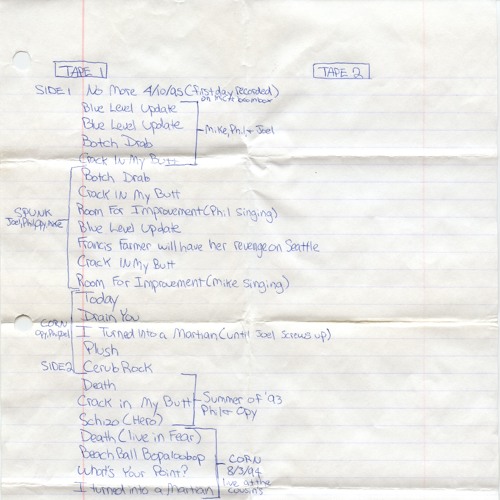 TAPE 1
TAPE 2
SIDE 1 No More 4/10/95 (first day recorded)
Blue Level Update
Blue Level Update
Botch Drab
Crack IN My Butt
Mike, Phil & Joel
Botch Drab
Crack IN My Butt
Room For Improvement (Phil Singing)
Blue Level Update
Francis Farmer will have her revenge on Seattle
Crack IN My Butt
Room For Improvement (Mike Singing)
SPUNK
Today
Drain You
I Turned into a Martian (until Joel Screws up)
Plush
CORN
SIDE 2 Cerub Rock
Death
Crack in My Butt
Schizo (Hero)
Summer of '93
Phil & Opy
Death (live in Fear)
Beach Ball Bopaloobop
What's Your Point?
I turned into a Martian
CORN
8/3/94
live at the
cousin's